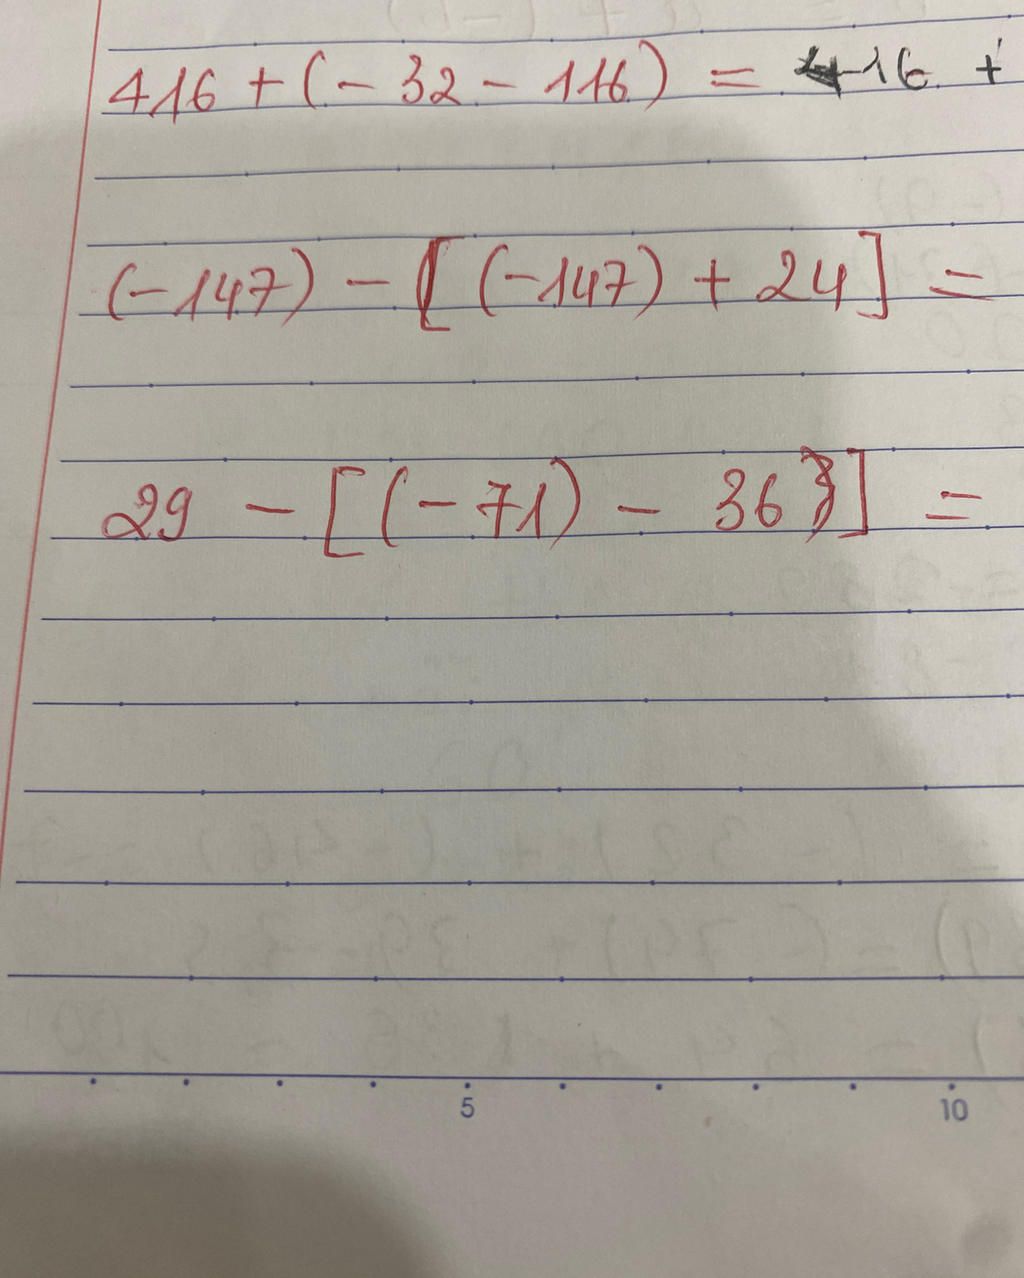 416 + (- 32 - 116) = 416 +
(-147) - [(-147) + 24] =
29 - [(-71) - 36] =
5 10